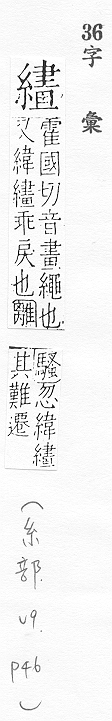 36字彙
繣
霍國切音畫繩也
又緯繣乖戾也離
騷忽緯繣
其難遷
(糸部.
v9.
p46)